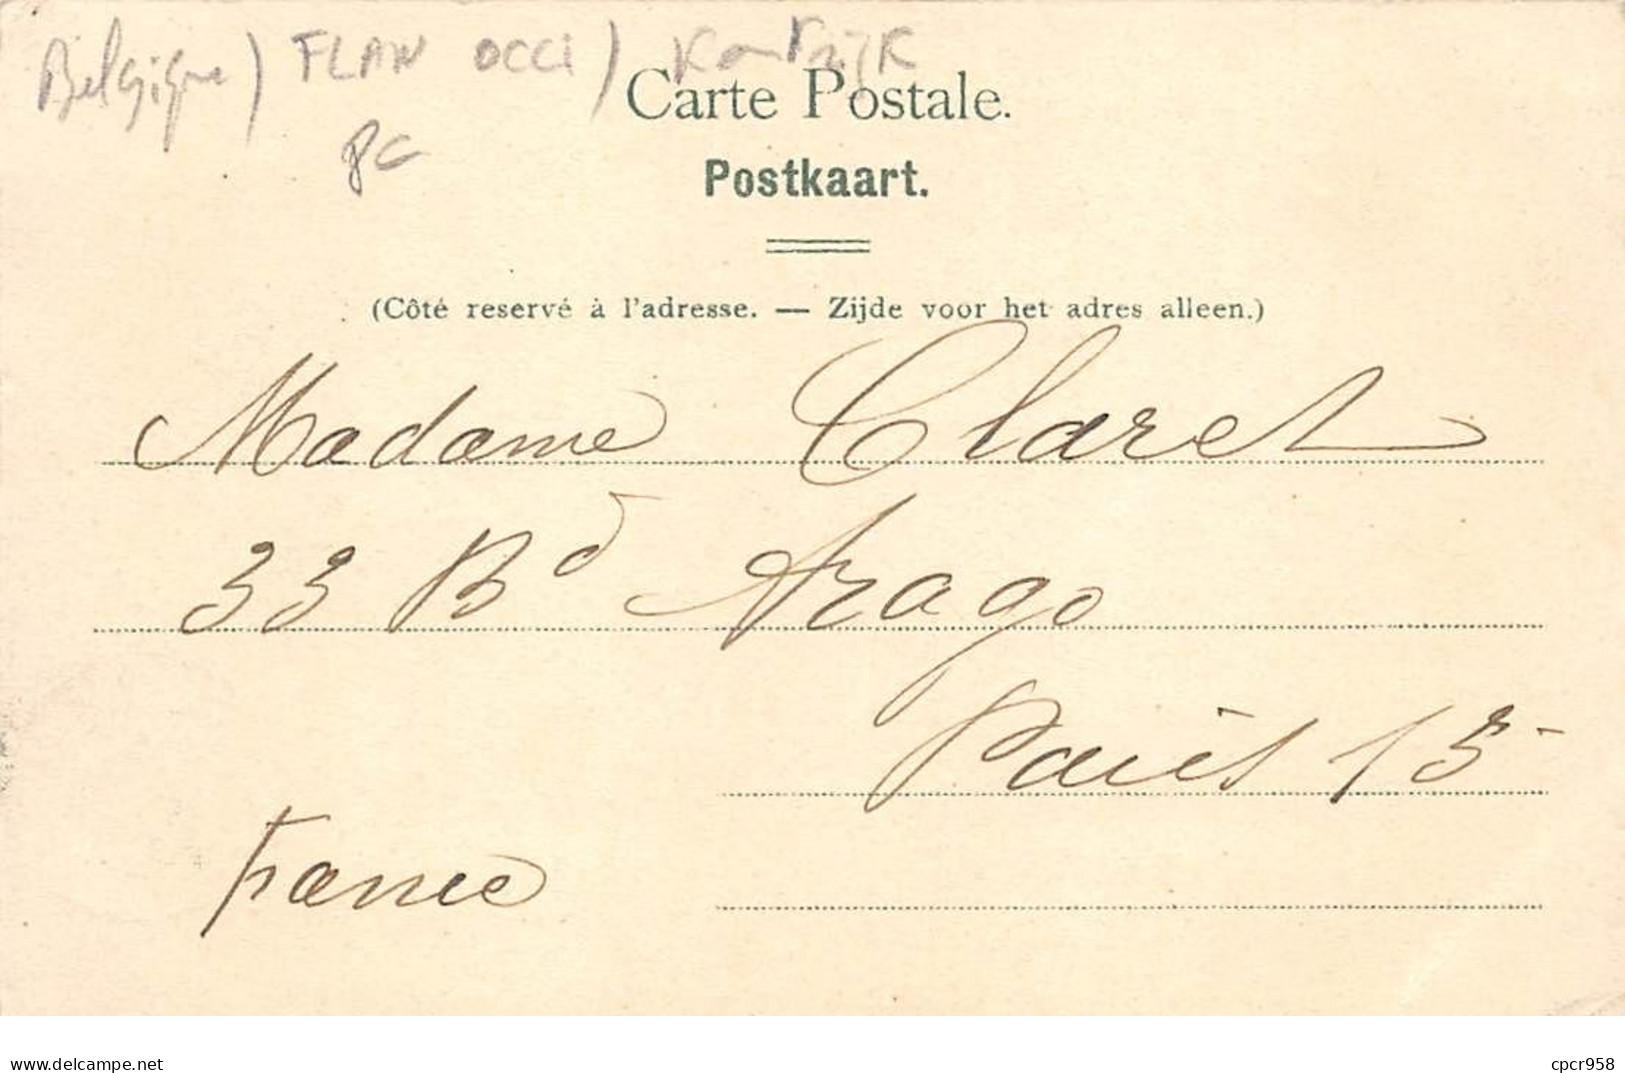 Belgique) FLAN OCCI) KortrijK
8€
Carte Postale.
Postkaart.
(Côté reservé à l'adresse. — Zijde voor het adres alleen.)
Madame Claret
33 Bd Arago
Paris 13
France
www.delcampe.net
cpcr958